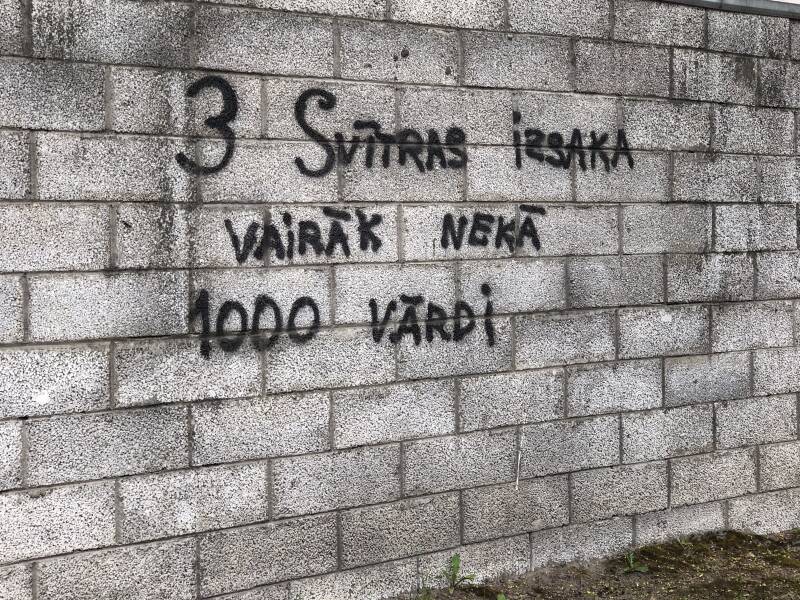 3 Svītras izsaka
vairāk nekā
1000 vārdi